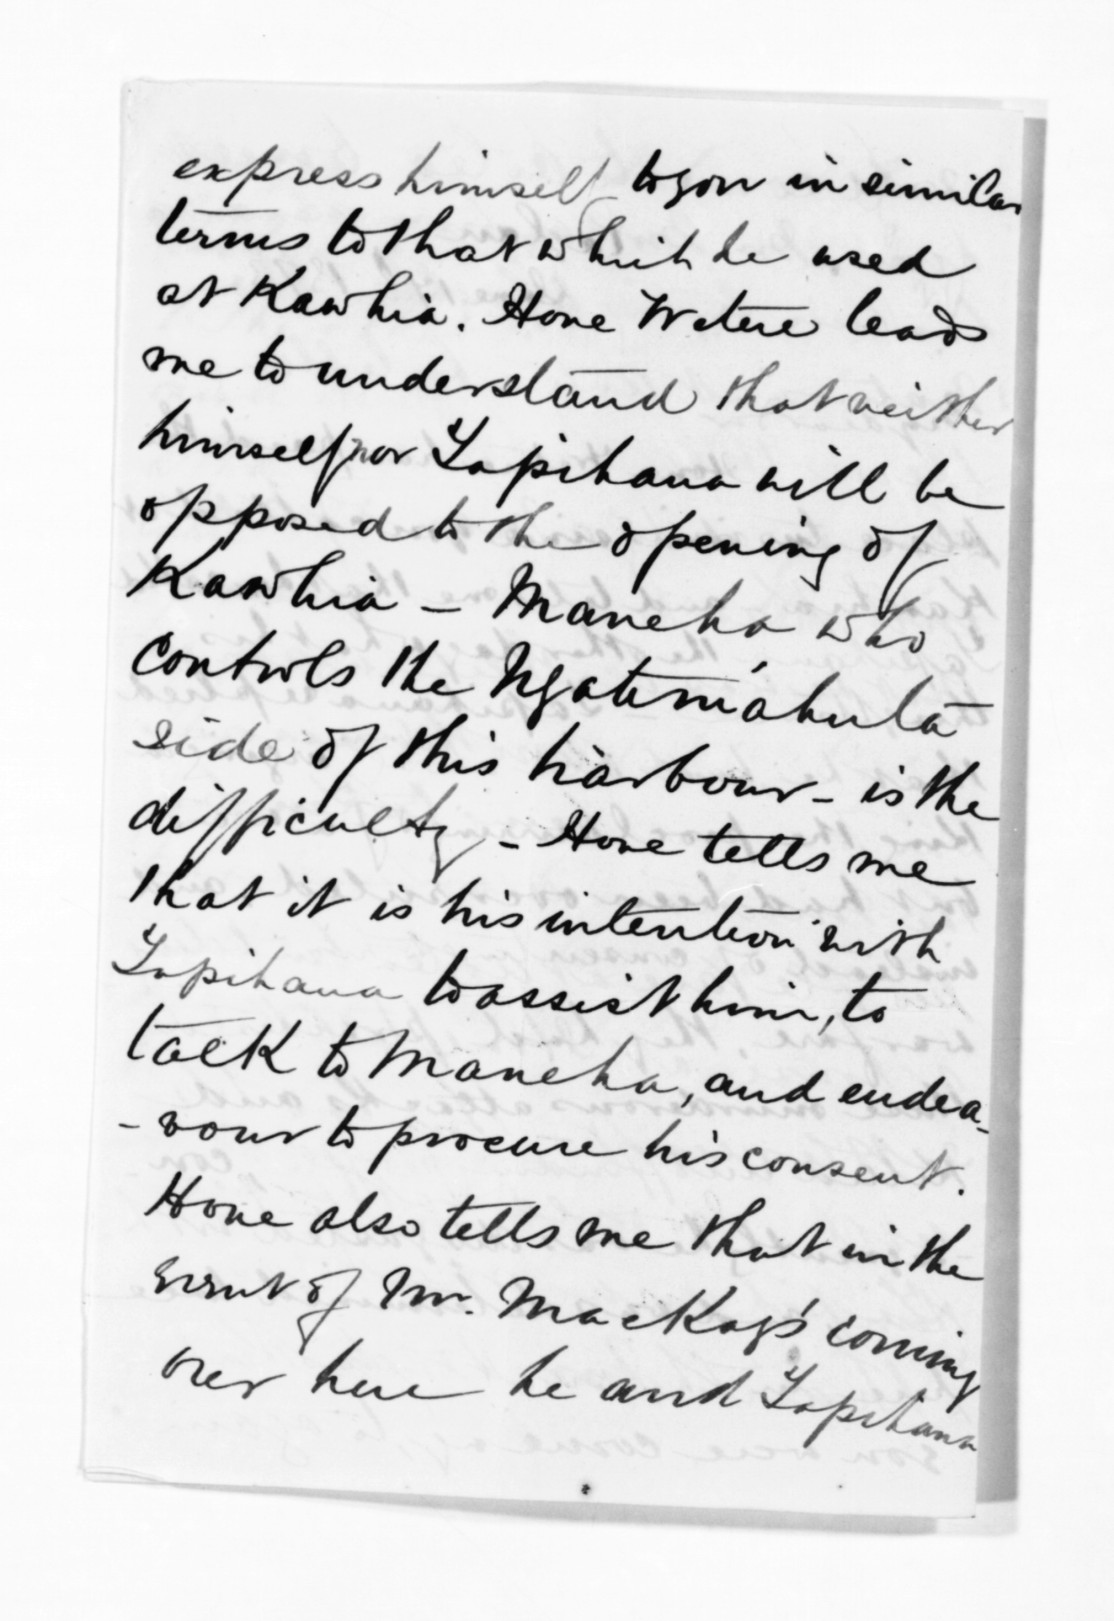 express himself to you in similar
terms to that which he used
at Kawhia. Hone Wetere leads
me to understand that neither
himself nor Tapihana will be
opposed to the opening of
Kawhia – Maneha who
controls the Ngatimahuta
side of this harbour – is the
difficulty – Hone tells me
that it is his intention with
Tapihana to assist him, to
talk to Maneha, and endea-
-vour to procure his consent.
Hone also tells me that in the
event of Mr. MacKay's coming
over here he and Tapihana